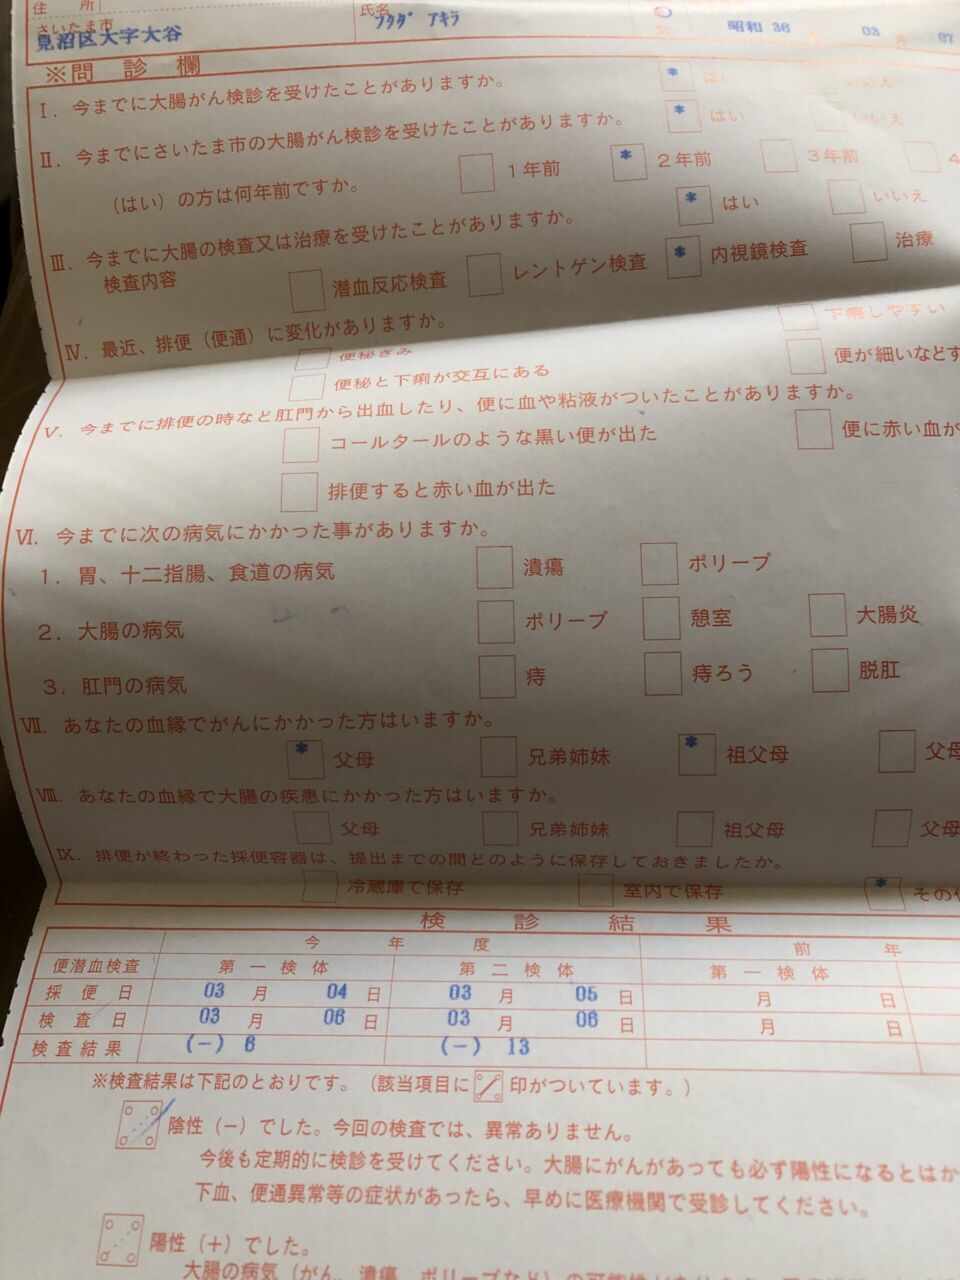 住 所
氏名
さいたま市
見沼区大字大谷
フクダ アキラ
女
昭和 36
03 月 07
※問 診 欄
Ⅰ．今までに大腸がん検診を受けたことがありますか。 * はい いいえ
Ⅱ．今までにさいたま市の大腸がん検診を受けたことがありますか。 * はい いいえ
（はい）の方は何年前ですか。 1年前 * 2年前 3年前 4
Ⅲ．今までに大腸の検査又は治療を受けたことがありますか。 * はい いいえ
検査内容 潜血反応検査 レントゲン検査 * 内視鏡検査 治療
Ⅳ．最近、排便（便通）に変化がありますか。
便秘ぎみ 下痢しやすい
便秘と下痢が交互にある 便が細いなどす
Ⅴ．今までに排便の時など肛門から出血したり、便に血や粘液がついたことがありますか。
コールタールのような黒い便が出た 便に赤い血が
排便すると赤い血が出た
Ⅵ．今までに次の病気にかかった事がありますか。
1．胃、十二指腸、食道の病気 潰瘍 ポリープ
2．大腸の病気 ポリープ 憩室 大腸炎
3．肛門の病気 痔 痔ろう 脱肛
Ⅶ．あなたの血縁でがんにかかった方はいますか。
* 父母 兄弟姉妹 * 祖父母 父母
Ⅷ．あなたの血縁で大腸の疾患にかかった方はいますか。
父母 兄弟姉妹 祖父母 父母
Ⅸ．排便が終わった採便容器は、提出までの間どのように保存しておきましたか。
冷蔵庫で保存 室内で保存 * その
検 診 結 果
今 年 度 前 年
便潜血検査 第一検体 第二検体 第一検体
採便日 03 月 04 日 03 月 05 日 月 日
検査日 03 月 06 日 03 月 06 日 月 日
検査結果 (-) 6 (-) 13
※検査結果は下記のとおりです。（該当項目に 印がついています。）
陰性（－）でした。今回の検査では、異常ありません。
今後も定期的に検診を受けてください。大腸にがんがあっても必ず陽性になるとはか
下血、便通異常等の症状があったら、早めに医療機関で受診してください。
陽性（＋）でした。
大腸の病気（がん、潰瘍、ポリープなど）の可能性が